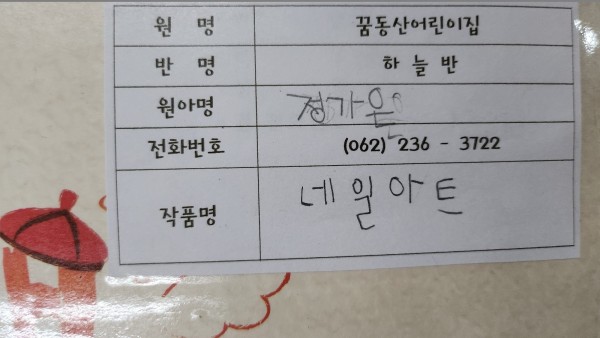 원 명 꿈동산어린이집
반 명 하늘반
원아명 정가은
전화번호 (062) 236 - 3722
작품명 네일아트